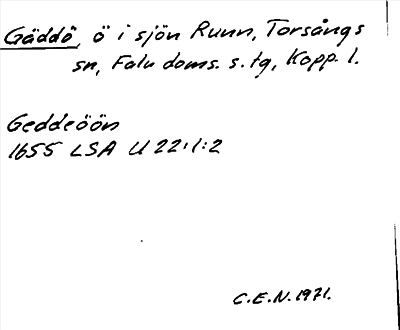 Gäddö, ö i sjön Runn, Torsångs
sn, Falu doms. s. tg, Kopp. l.
Geddeöön
1655 LSA U 22:1:2
C.E.N. 1971.